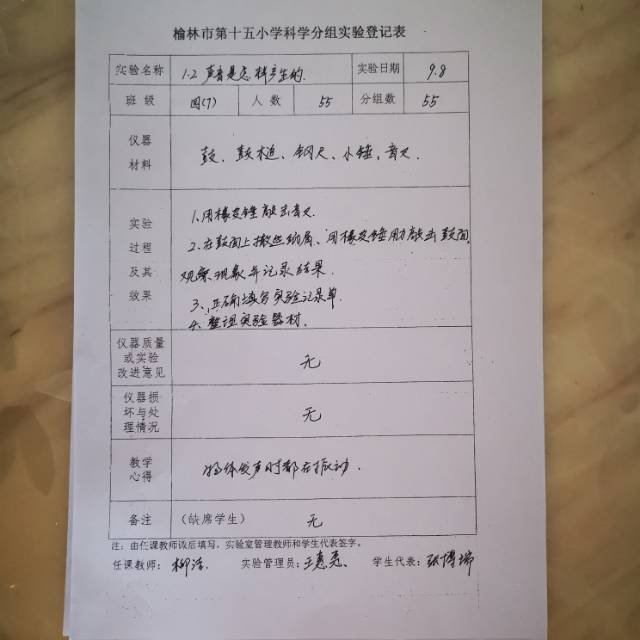 榆林市第十五小学科学分组实验登记表
实验名称 1.2 声音是怎样产生的. 实验日期 9.8
班级 四(7) 人数 55 分组数 55
仪器材料 鼓、鼓槌、钢尺、小锤、音叉.
实验过程及其效果 1.用橡皮锤敲击音叉.
2.在鼓面上撒些纸屑、用橡皮锤敲击鼓面,
观察现象并记录结果.
3、正确填写实验记录单.
4.整理实验器材.
仪器质量或实验改进意见 无
仪器损坏与处理情况 无
教学心得 物体发声时都在振动.
备注 (缺席学生) 无
注：由任课教师课后填写，实验室管理教师和学生代表签字。
任课教师：柳 实验管理员：王 学生代表：张博瑞